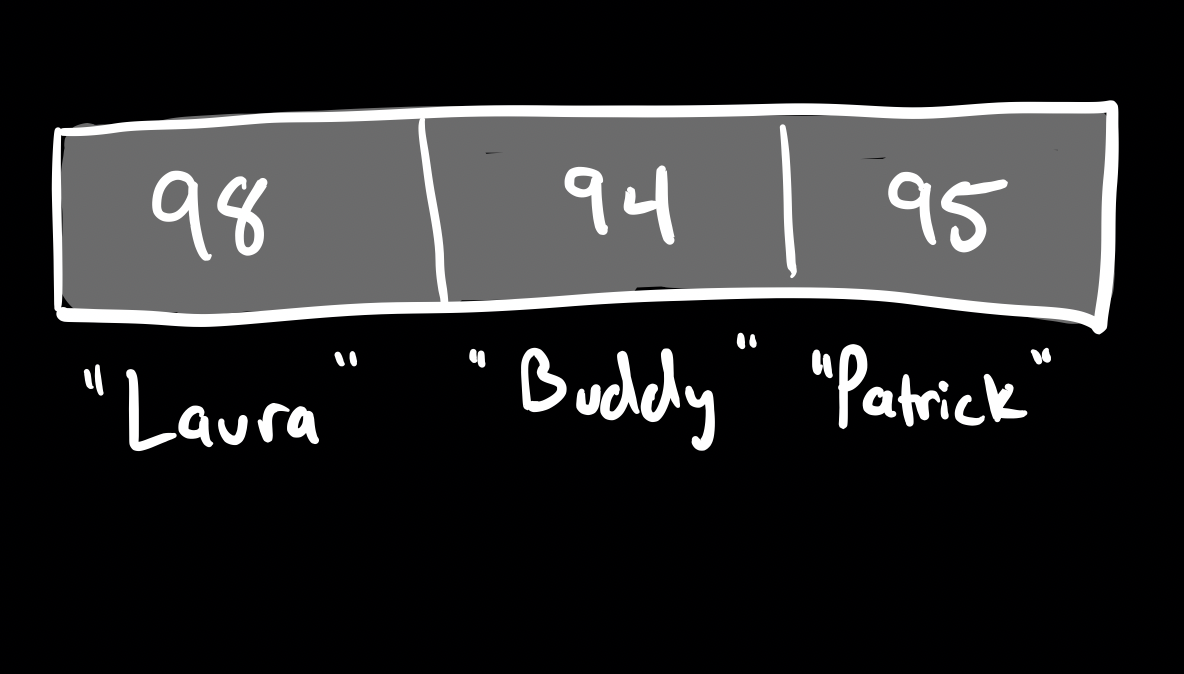 98 94 95
"Laura" "Buddy" "Patrick"